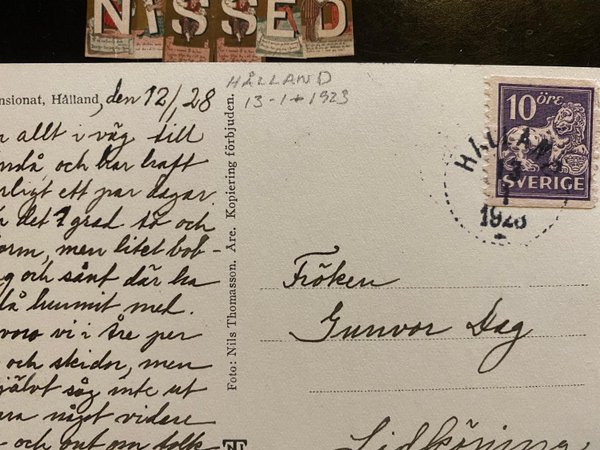 NISSED
HÅLLAND
13-1-1923
nsionat, Hålland, den 12/1 28
allt i väg till
ndå, och har haft
rligt ett par dagar.
det 7 grad. tö och
orm, men litet bob-
g och sånt där ha
då hunnit med.
voro vi i Åre per
och skidor, men
självt såg inte ut
ara något vidare
och ont om folk
Foto: Nils Thomasson. Åre. Kopiering förbjuden.
10 ÖRE
SVERIGE
HÅLLAND
13
1
1928
Fröken
Gunvor Dag
Lidköping
NT